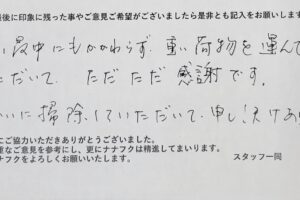 最後に印象に残った事やご意見ご希望がございましたら是非とも記入をお願いします
い最中にもかかわらず、重い荷物を運んで
ただいて、ただただ感謝です。
いに掃除していただいて、申し訳けあ
にご協力いただきありがとうございました。
重なご意見を参考にし、更にナナフクは精進してまいります。
ナフクをよろしくお願いいたします。
スタッフ一同